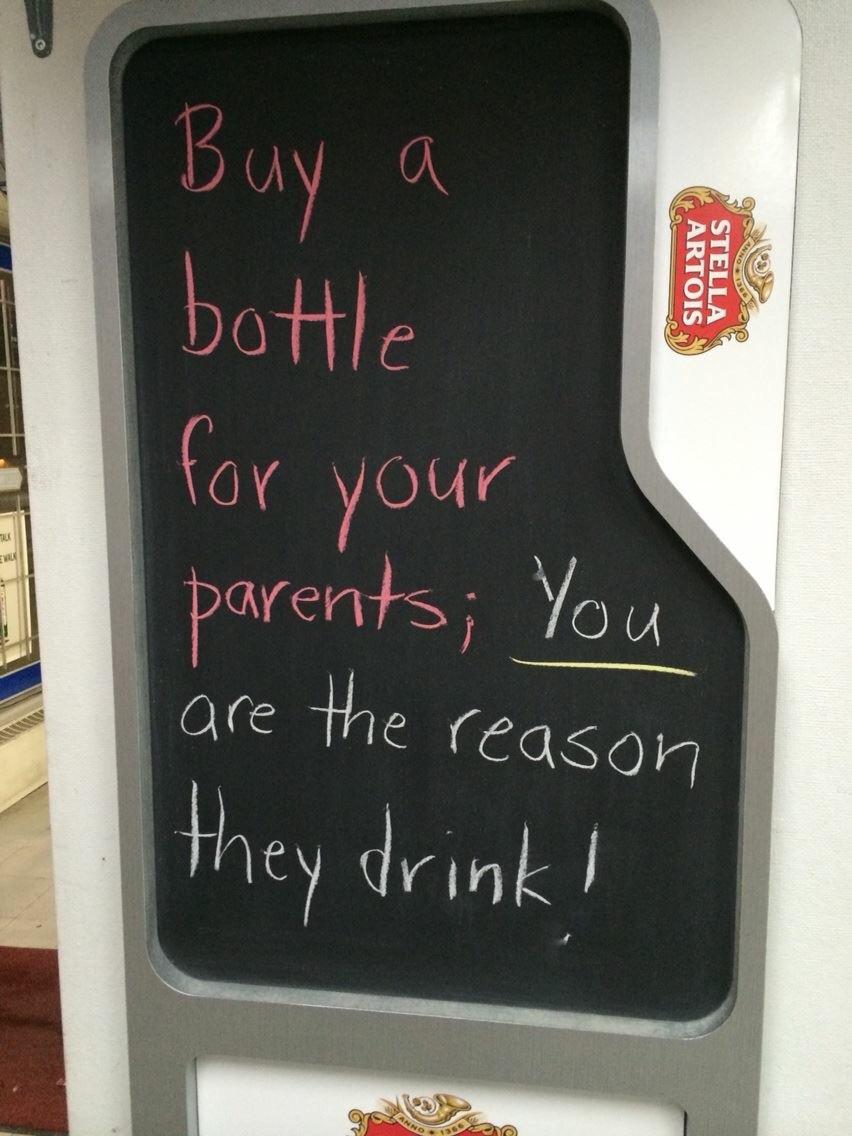 Buy a
bottle
for your
parents; You
are the reason
they drink!
STELLA
ARTOIS
ANNO 1366
TALK
E WALK
ANNO 1366